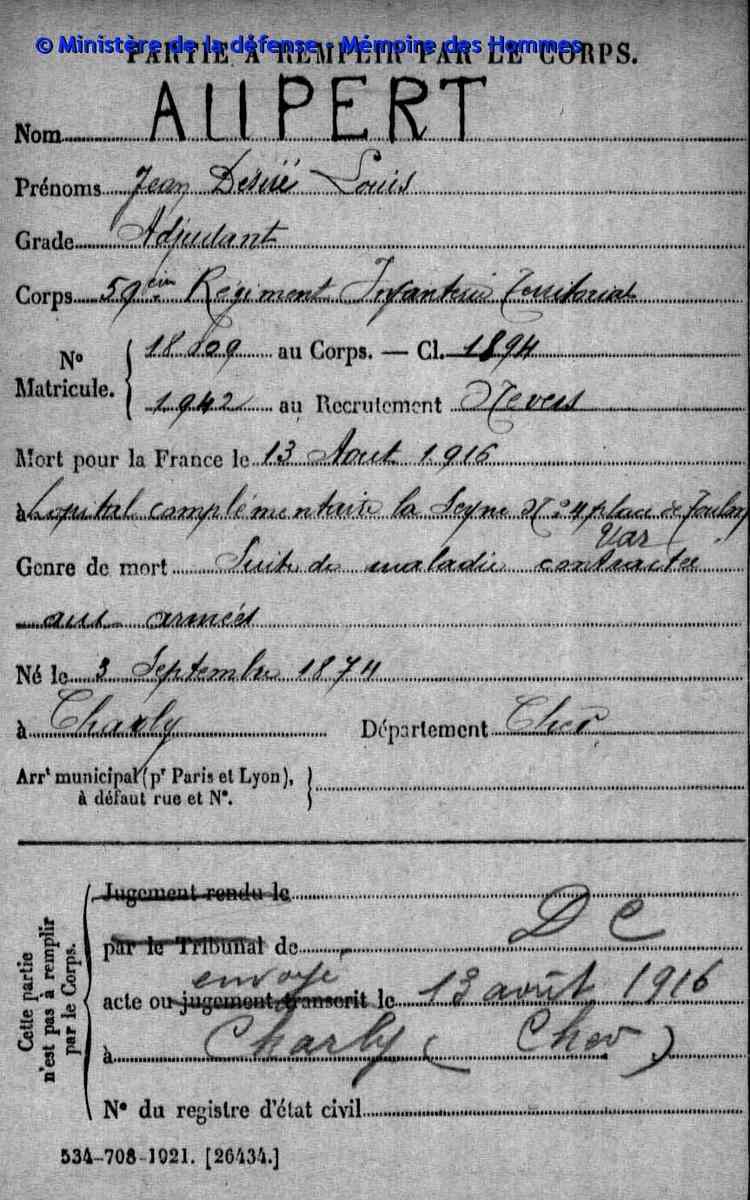 © Ministère de la défense - Mémoire des Hommes
PARTIE À REMPLIR PAR LE CORPS.
Nom AUPERT
Prénoms Jean Désiré Louis
Grade Adjudant
Corps 59ème Régiment Infanterie Territorial
N° Matricule. { 18809 au Corps. — Cl. 1894
1942 au Recrutement Nevers
Mort pour la France le 13 Aout 1916
à hopital complémentaire la Seyne N° 4 place de Toulon
Var
Genre de mort Suite de maladie contractée
aux armées
Né le 3 Septembre 1874
à Charly Département Cher
Arrt municipal (pr Paris et Lyon),
à défaut rue et N°.
Cette partie n'est pas à remplir par le Corps.
Jugement rendu le
par le Tribunal de D C
envoyé
acte ou jugement transcrit le 13 août 1916
à Charly (Cher)
N° du registre d'état civil
534-708-1921. [26434.]